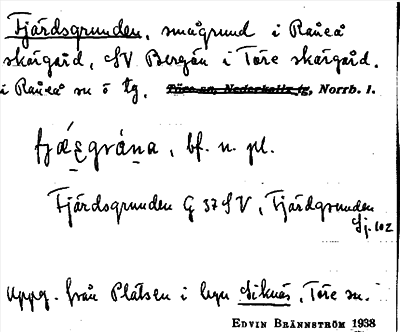 Fjärdsgrunden, smågrund i Råneå
skärgård, SV Bergön i Töre skärgård.
i Råneå sn ö tg. Töre sn, Nederkalix tg, Norrb. l.
fjæ̰ṣgrána, bf. n. pl.
Fjärdsgrunden G 37 SV, Fjärdgrunden
Sj. 102
Uppg. från Platsen i byn Siknäs, Töre sn.
EDVIN BRÄNNSTRÖM 1938